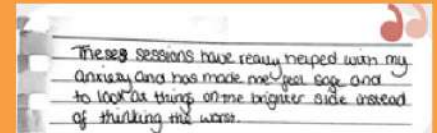 These sessions have really helped with my
anxiety and has made me feel safe and
to look at things on the brighter side instead
of thinking the worst.